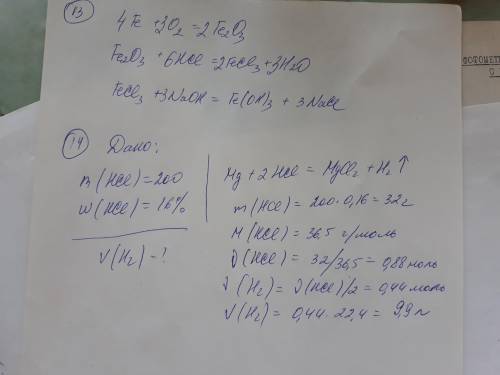 13
4Fe + 3O₂ = 2Fe₂O₃
Fe₂O₃ + 6HCl = 2FeCl₃ + 3H₂O
FeCl₃ + 3NaOH = Fe(OH)₃ + 3NaCl
14 Дано:
m(HCl) = 200
W(HCl) = 16%
V(H₂) - ?
Mg + 2HCl = MgCl₂ + H₂ ↑
m(HCl) = 200 · 0,16 = 32 г
M(HCl) = 36,5 г/моль
ν(HCl) = 32/36,5 = 0,88 моль
ν(H₂) = ν(HCl)/2 = 0,44 моль
V(H₂) = 0,44 · 22,4 = 9,9 л
ФОТОМЕТ